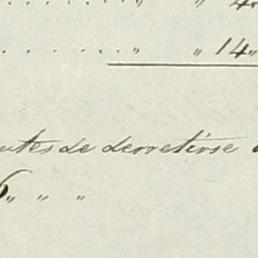 . . . . . . . . . . . „ „ 4
. . . . . . . . . . „ „ 14„
utes de derretirse
6„ „ „